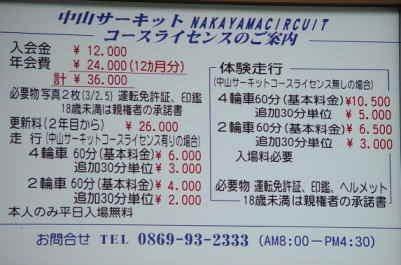 中山サーキット NAKAYAMACIRCUIT
コースライセンスのご案内
入会金 ¥ 12.000
年会費 ¥ 24.000(12ヵ月分)
計 ¥ 36.000
必要物 写真2枚(3/2.5) 運転免許証、印鑑
18歳未満は親権者の承諾書
更新料(2年目から) ¥ 26.000
走 行 (中山サーキットコースライセンス有りの場合)
4輪車 60分(基本料金) ¥ 6.000
追加30分単位 ¥ 3.000
2輪車 60分(基本料金) ¥ 4.000
追加30分単位 ¥ 2.000
本人のみ平日入場無料
体験走行
(中山サーキットコースライセンス無しの場合)
4輪車60分(基本料金) ¥10.500
追加30分単位 ¥ 5.000
2輪車60分(基本料金) ¥ 6.500
追加30分単位 ¥ 3.000
入場料必要
必要物 運転免許証、印鑑、ヘルメット
18歳未満は親権者の承諾書
お問合せ TEL 0869-93-2333 (AM8:00ーPM4:30)